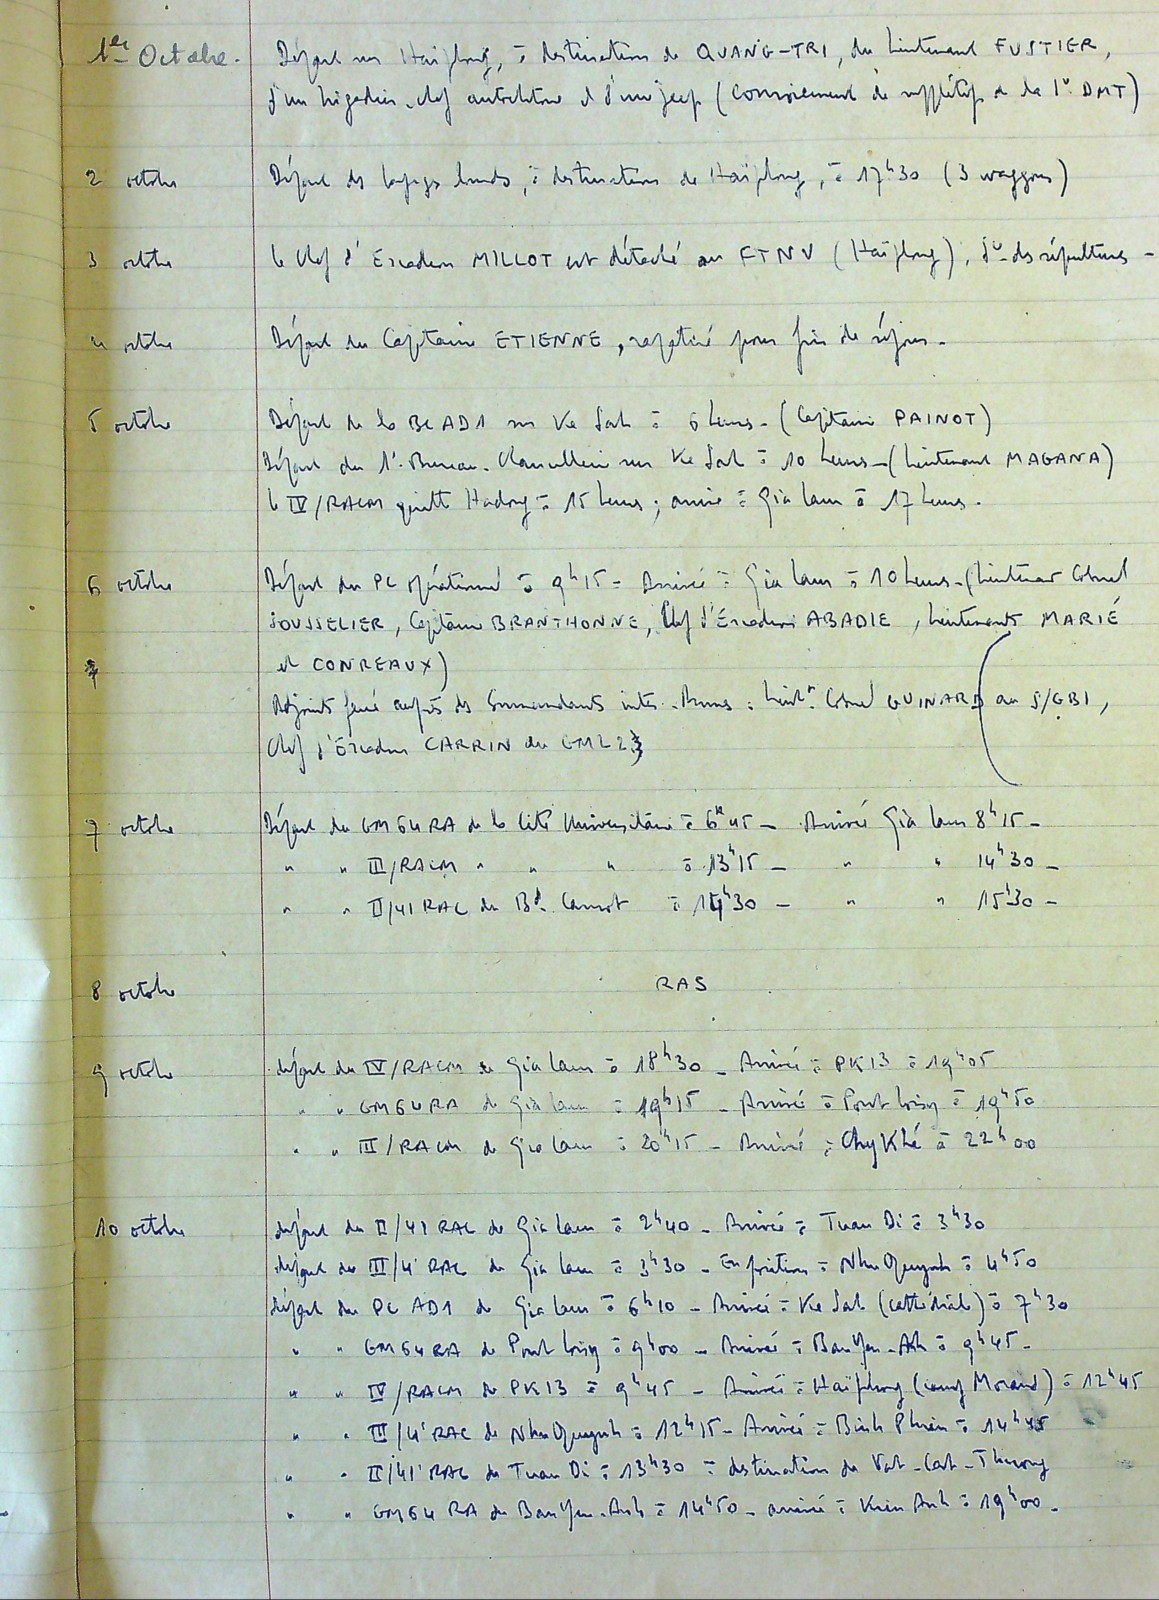 1er Octobre. Départ sur Haïphong, à destination de QUANG-TRI, du Lieutenant FUSTIER,
d'un brigadier-chef autochtone et d'une jeep (de la 1e DMT)
2 octobre Départ des bagages lourds, à destination de Haïphong, à 17h30 (3 waggons)
3 octobre le Chef d'Escadron MILLOT est détaché au FTNV (Haïphong), des sépultures -
4 octobre Départ du Capitaine ETIENNE, rapatrié pour fin de séjour -
5 octobre Départ de la BCAD1 sur Ke Sat à 6 heures - (Capitaine PAINOT)
Départ du 1e Bureau - Chancellerie sur Ke Sat à 10 heures - (Lieutenant MAGANA)
le IV/RACM quitte Hadong à 15 heures ; arrive à Gia Lam à 17 heures -
6 octobre Départ du PC opérationnel à 9h15 - Arrivée à Gia Lam à 10 heures - (Lieutenant Colonel
JOUSSELIER, Capitaine BRANTHONNE, Chef d'Escadron ABADIE, Lieutenants MARIÉ
et CONREAUX)
Adjoints feux auprès des Commandants inter-Armes : Lieutt Colonel GUINARD au S/GB1,
Chef d'Escadron CARRIN du GML2
7 octobre Départ du GM64RA de la Cité Universitaire à 6h45 - Arrivée Gia Lam 8h15 -
" " III/RACM " " " à 13h15 - " " 14h30 -
" " II/41 RAC du Bd Carnot à 14h30 - " " 15h30 -
8 octobre RAS
9 octobre départ du IV/RACM de Gia Lam à 18h30 - Arrivée à PK13 à 19h05
" " GM64RA de Gia Lam à 19h15 - Arrivée à Pont Loisy à 19h50
" " III/RACM de Gia Lam à 20h15 - Arrivée à à 22h00
10 octobre départ du II/41 RAC de Gia Lam à 2h40 - Arrivée à Tuan Di à 3h30
départ du III/4e RAC de Gia Lam à 3h30 - En position à Nhu Quynh à 4h50
départ du PC AD1 de Gia Lam à 6h10 - Arrivée à Ke Sat (cathédrale) à 7h30
" " GM64RA de Pont Loisy à 9h00 - Arrivée à Ban Yen-Anh à 9h45 -
" " IV/RACM de PK13 à 9h45 - Arrivée à Haïphong (camp Morand) à 12h45
" " III/4e RAC de Nhu Quynh à 12h15 - Arrivée à Binh Phien à 14h45
" " II/41e RAC de Tuan Di à 13h30 à destination de Vat-Cat-Thuong
" " GM64 RA de Ban Yen-Anh à 14h50 - arrivée à Kien Anh à 19h00 -